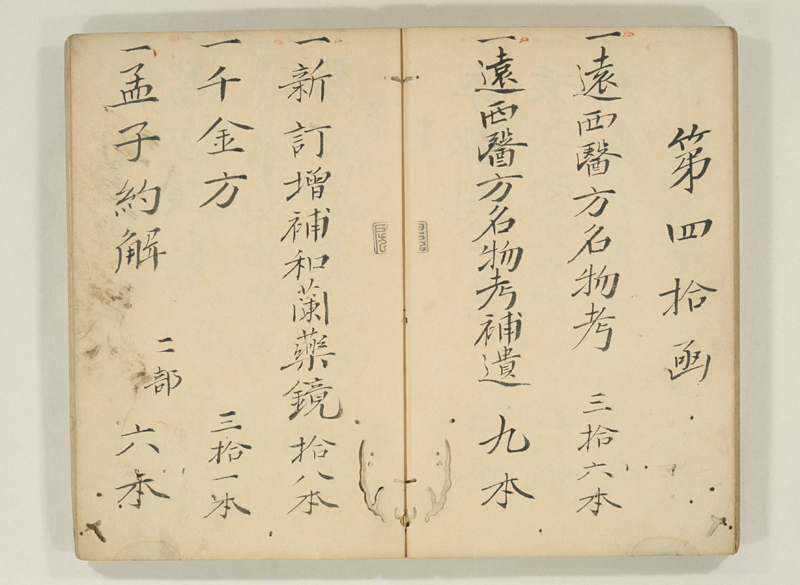 第四拾函
一遠西醫方名物考 三拾六本
一遠西醫方名物考補遺 九本
一新訂增補和蘭藥鏡 拾八本
一千金方 三拾一本
一孟子約解 二部 六本